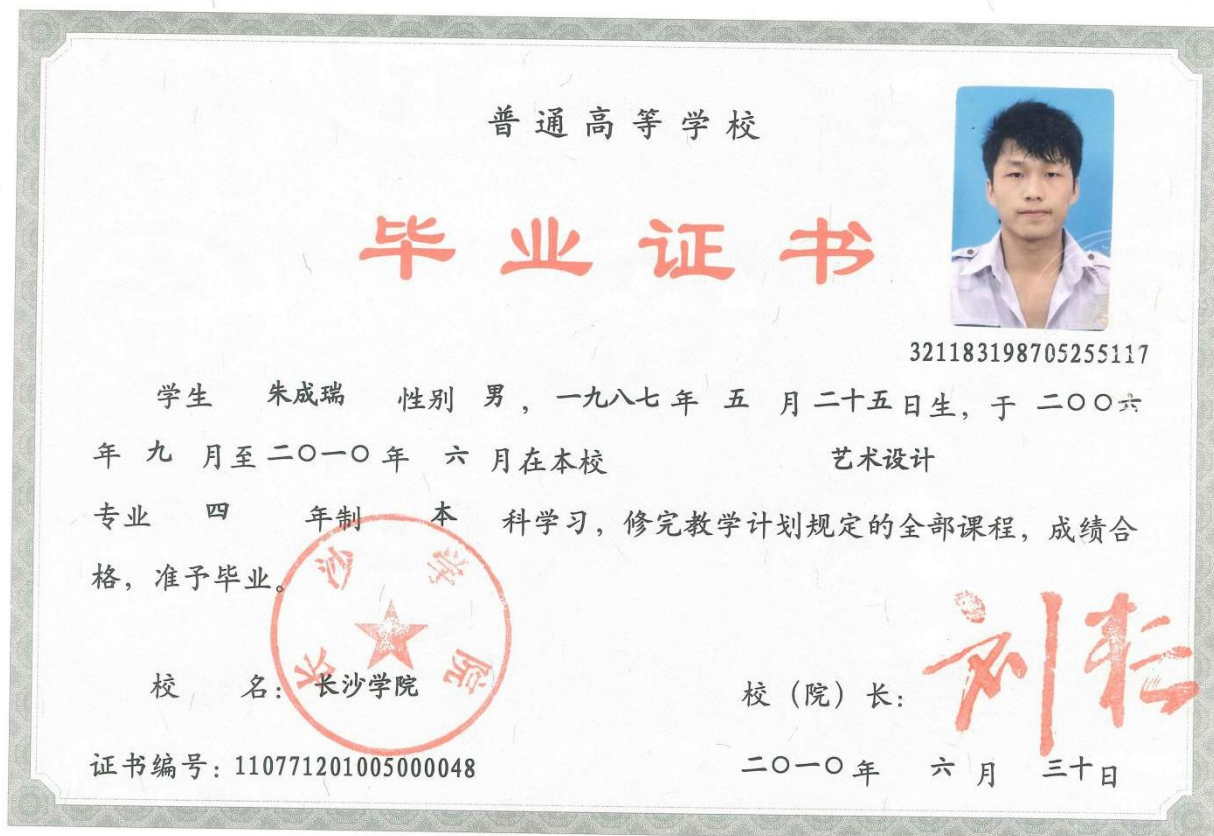 普通高等学校
毕业证书
321183198705255117
学生 朱成瑞 性别 男，一九八七年 五 月二十五日生，于 二〇〇六
年 九 月至二〇一〇年 六 月在本校 艺术设计
专业 四 年制 本 科学习，修完教学计划规定的全部课程，成绩合
格，准予毕业。
长沙学院
校 名：长沙学院
校（院）长：
证书编号：110771201005000048
二〇一〇年 六 月 三十日